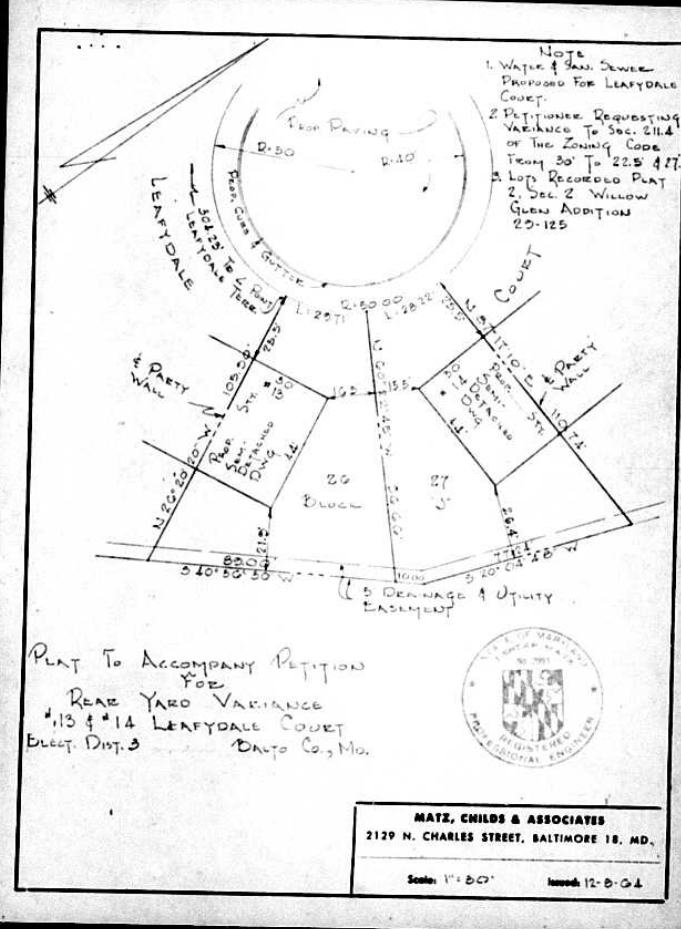 NOTE
1. WATER & SAN. SEWER
PROPOSED FOR LEAFYDALE
COURT.
2. PETITIONER REQUESTING
VARIANCE TO SEC. 211.4
OF THE ZONING CODE
FROM 30' TO 22.5' & 27.
3. LOTS RECORDED PLAT
2, SEC. 2 WILLOW
GLEN ADDITION
29-125
PROP. PAVING
R=50
R=40
PROP. CURB & GUTTER
LEAFYDALE
COURT
LEAFYDALE TERR.
R=50.00
L=29.71
L=28.22
25.5'
25.5'
105.50'
N 26° 20' 20" W
& PARTY
WALL
PROP.
SEMI-
DETACHED
DWG
STY.
# 13
30
44'
16.5
15.5'
30
# 14
PROP.
SEMI-
DETACHED
DWG
STY.
44'
& PARTY
WALL
110.74'
26
BLOCK
27
"J"
21.5'
26.4'
85.00'
S 40° 56' 50" W
10.00
77.24
S 20° 04' 48" W
5' DRAINAGE & UTILITY
EASEMENT
PLAT TO ACCOMPANY PETITION
FOR
REAR YARD VARIANCE
#13 & #14 LEAFYDALE COURT
ELECT. DIST. 3 BALTO CO., MD.
STATE OF MARYLAND
REGISTERED
PROFESSIONAL ENGINEER
MATZ, CHILDS & ASSOCIATES
2129 N. CHARLES STREET, BALTIMORE 18, MD.
Scale: 1"=30'
Issued: 12-8-64